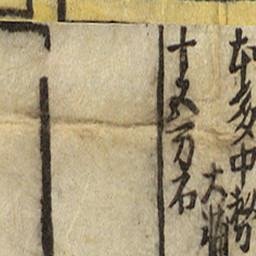 本多中務
大輔
十五万石